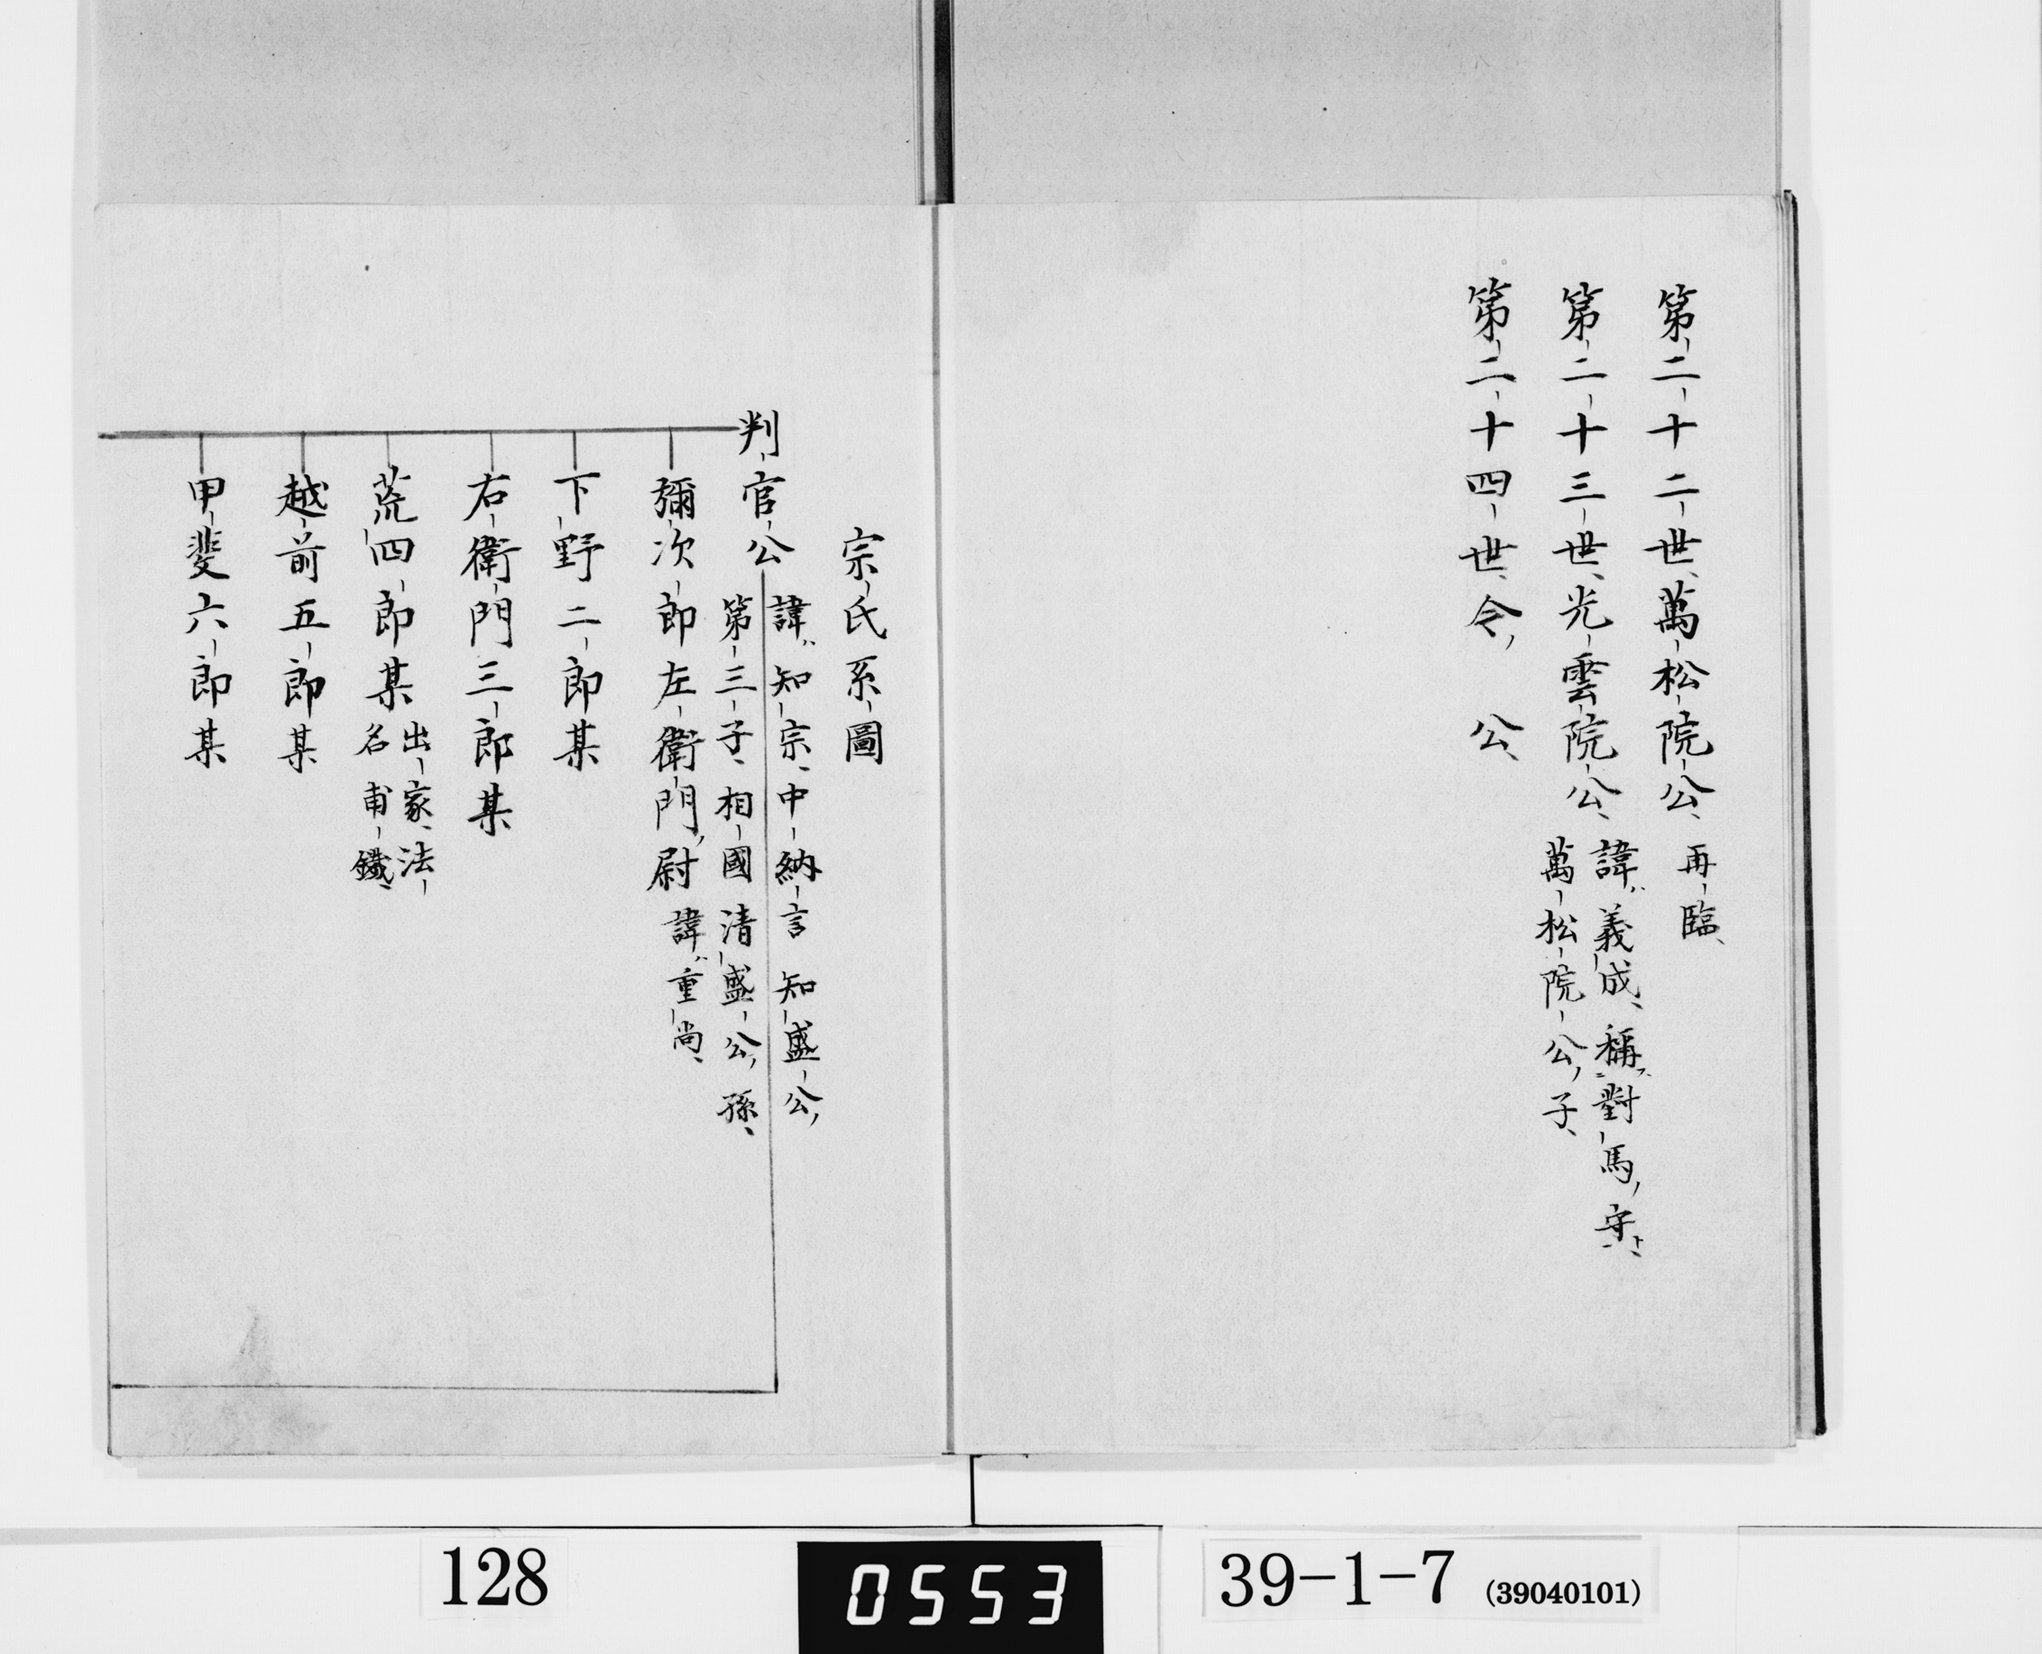 第二十二世萬松院公再臨
第二十三世光雲院公諱義成稱對馬守
萬松院公子
第二十四世令公
宗氏系圖
判官公諱知宗中納言知盛公
第三子相國清盛公孫
彌次郎左衛門尉諱重尚
下野二郎某
右衛門三郎某
荒四郎某出家法
名甫鐵
越前五郎某
甲斐六郎某
128
0553
39-1-7 (39040101)